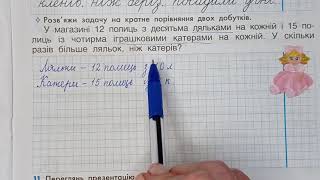 Розв'яжи задачу на кратне порівняння двох добутків.
У магазині 12 полиць з десятьма ляльками на кожній і 15 по-
лиць із чотирма іграшковими катерами на кожній. У скільки
разів більше ляльок, ніж катерів?
Ляльки – 12 полиць л
Катери – 15 полиць к
11 Переглянь презентацію